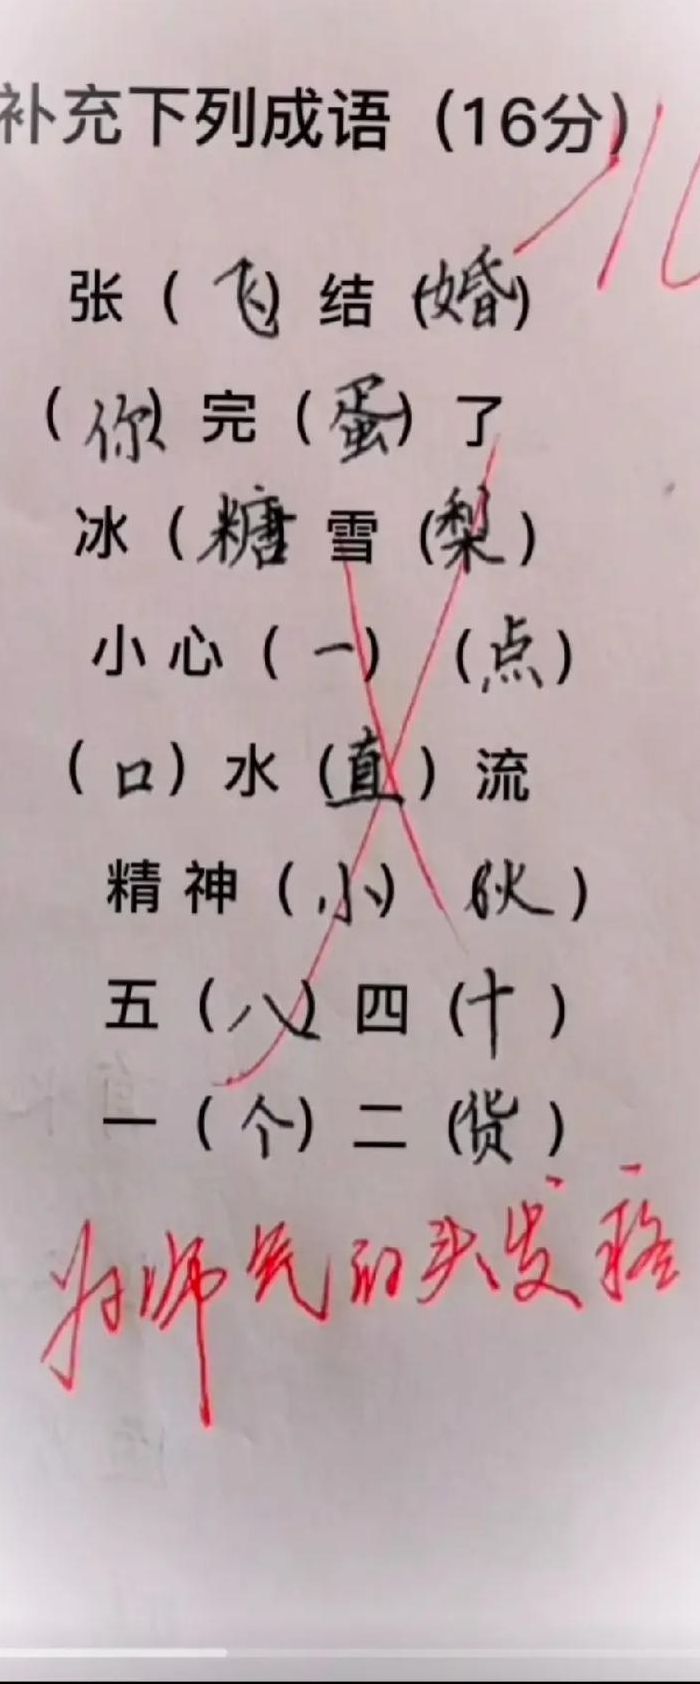 补充下列成语（16分）
张（飞）结（婚）
（你）完（蛋）了
冰（糖 雪（梨）
小心（一）（点）
（口）水（直）流
精神（小）伙）
五（八）四（十）
一（个）二（货）
为师气的头发